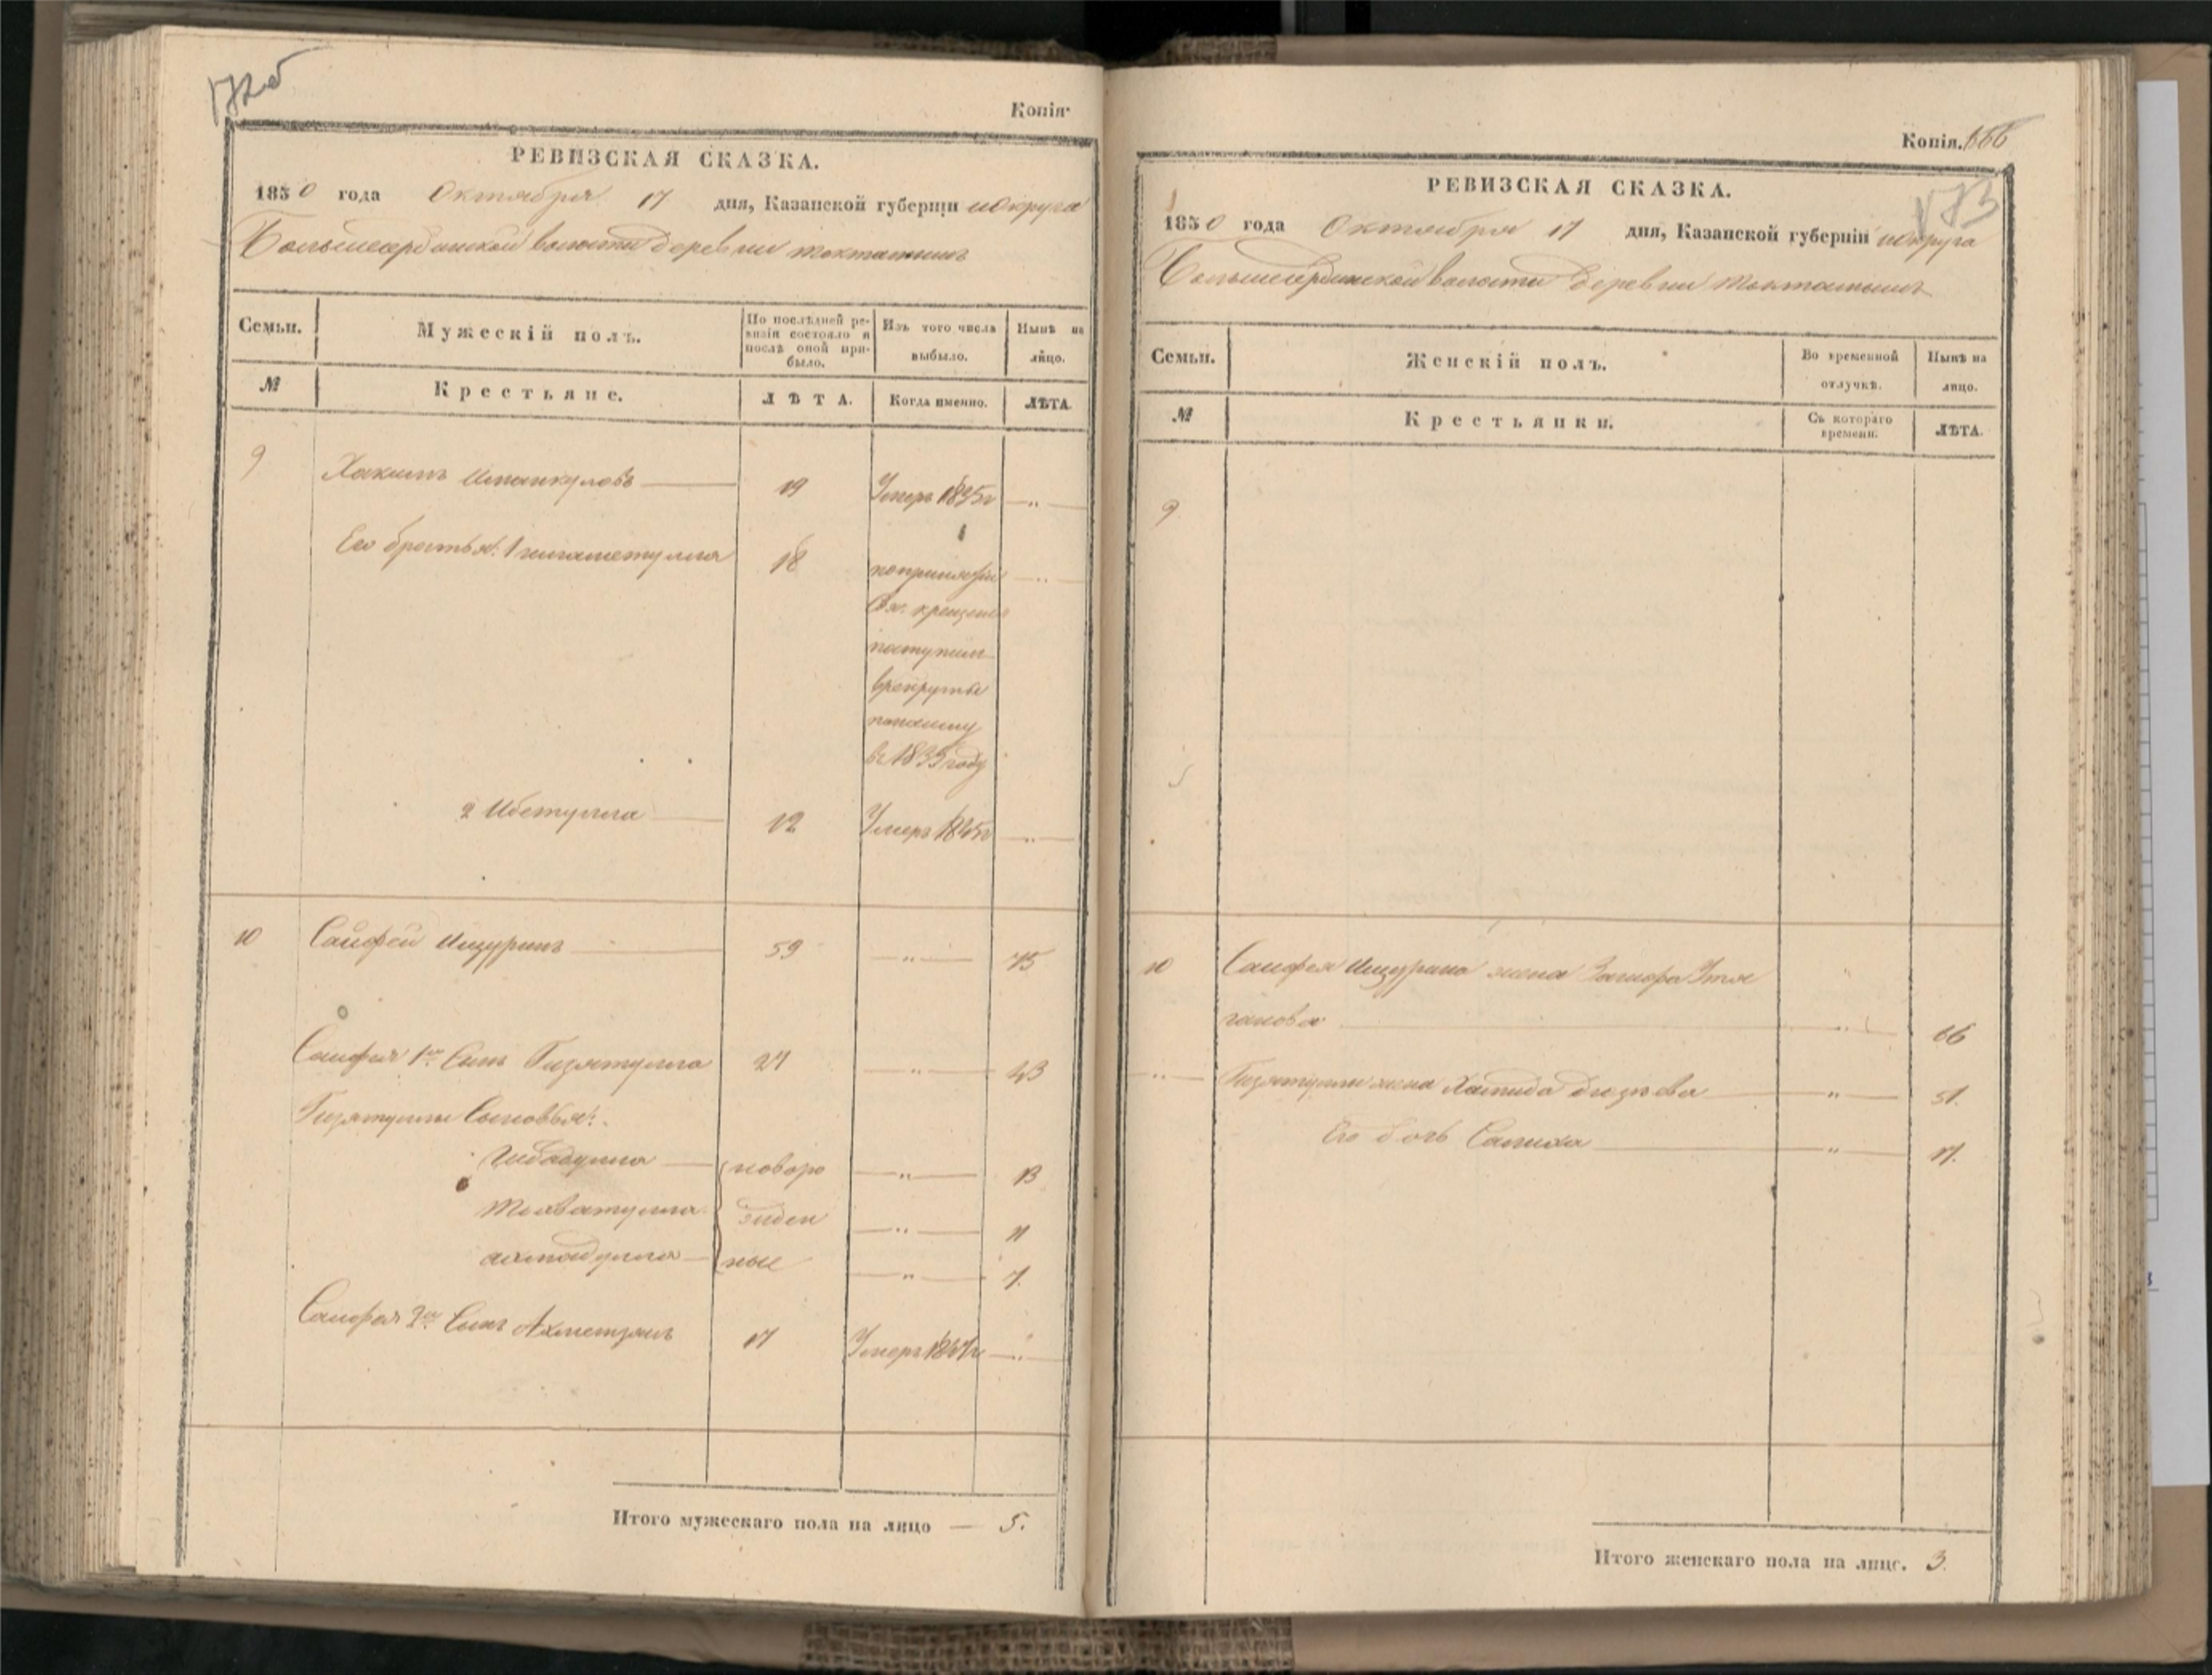 172об
Копія
РЕВИЗСКАЯ СКАЗКА.
1850 года Октября 17 дня, Казанской губерніи и Округа
Большесердинской волости деревни токташишъ
Семьи. Мужескій полъ. По послѣдней ревизіи состояло и послѣ оной прибыло. Изъ того числа выбыло. Нынѣ на лицо.
№ Крестьяне. ЛѢТА. Когда именно. ЛѢТА.
9 Хакимъ 19 Умеръ 1835г — „ —
Его братья: 1 18 по принятіи — „ —
Св. крещенія
поступилъ
в рекруты
в 1835 году
2 Ибетулла 12 Умеръ — „ —
10 Сайфей Ишуринъ 59 — „ — 75
Сайфея 1й Сынъ Гизятулла 27 — „ — 43
Гизятуллы Сыновья:
Гибадулла новоро — „ — 13
жден — „ — 11
ные — „ — 7.
Сайфея 2й Сынъ Ахметзянъ 17 Умеръ — „ —
Итого мужескаго пола на лицо — 5.
Копія. 666
173
РЕВИЗСКАЯ СКАЗКА.
1850 года Октября 17 дня, Казанской губерніи и округа
Большесердинской волости деревни токташишъ
Семьи. Женскій полъ. Во временной отлучкѣ. Нынѣ на лицо.
№ Крестьянки. Съ котораго времени. ЛѢТА.
9
10 Сайфея Ишурина жена
— „ — 66
— „ — Гизятуллы жена Хамида — „ — 31.
Его дочь Салиха — „ — 17.
Итого женскаго пола на лицо. 3.